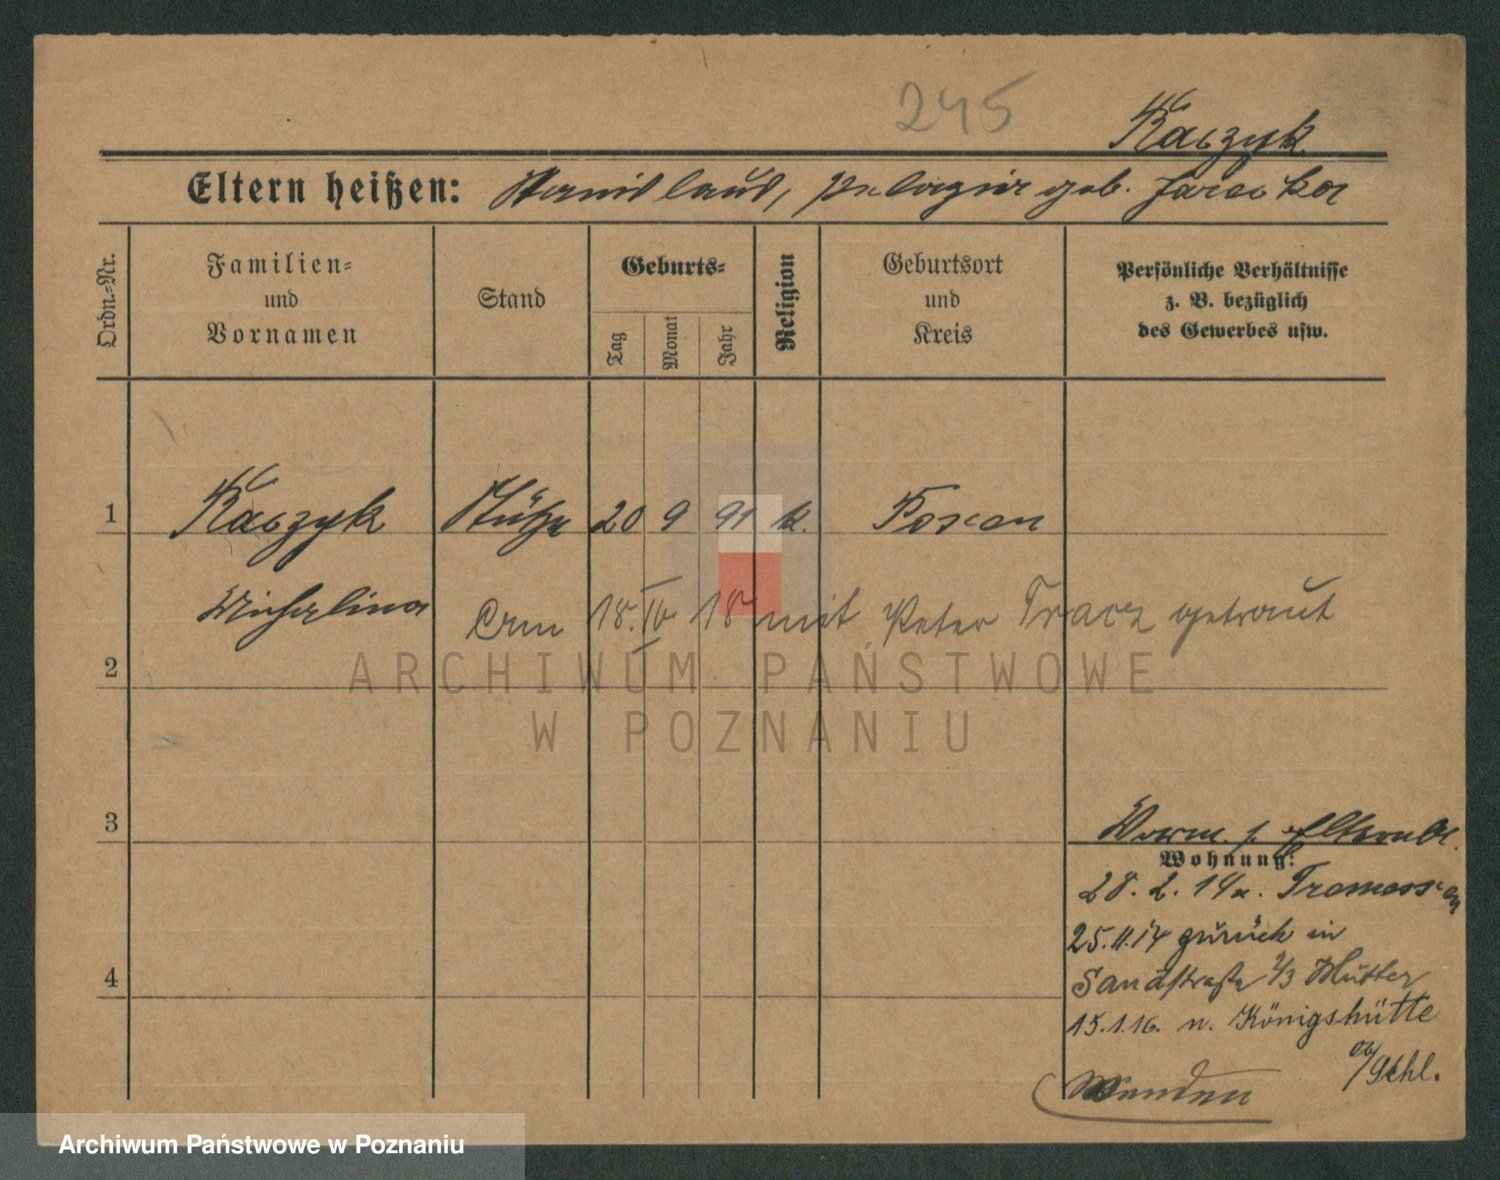 245
Kaczyk
Eltern heißen: Stanislaus, Pelagia geb. Jarecka
Ordn.-Nr.
Familien- und Vornamen
Stand
Geburts-
Tag
Monat
Jahr
Religion
Geburtsort und Kreis
Persönliche Verhältnisse
z. B. bezüglich
des Gewerbes usw.
1 Kaczyk Stütze 20 9 91 k. Posen
Michalina am 18. IV 18 mit Peter Tracz getraut
2
3
4
Vorm. s. Elternbl.
Wohnung:
28. 2. 14 n. Tremessen
25.11.14 zurück in
Sandstraße 1/3 Mutter
15.1.16. n. Königshütte
O/Schl.
Wenden
ARCHIWUM PAŃSTWOWE
W POZNANIU
Archiwum Państwowe w Poznaniu